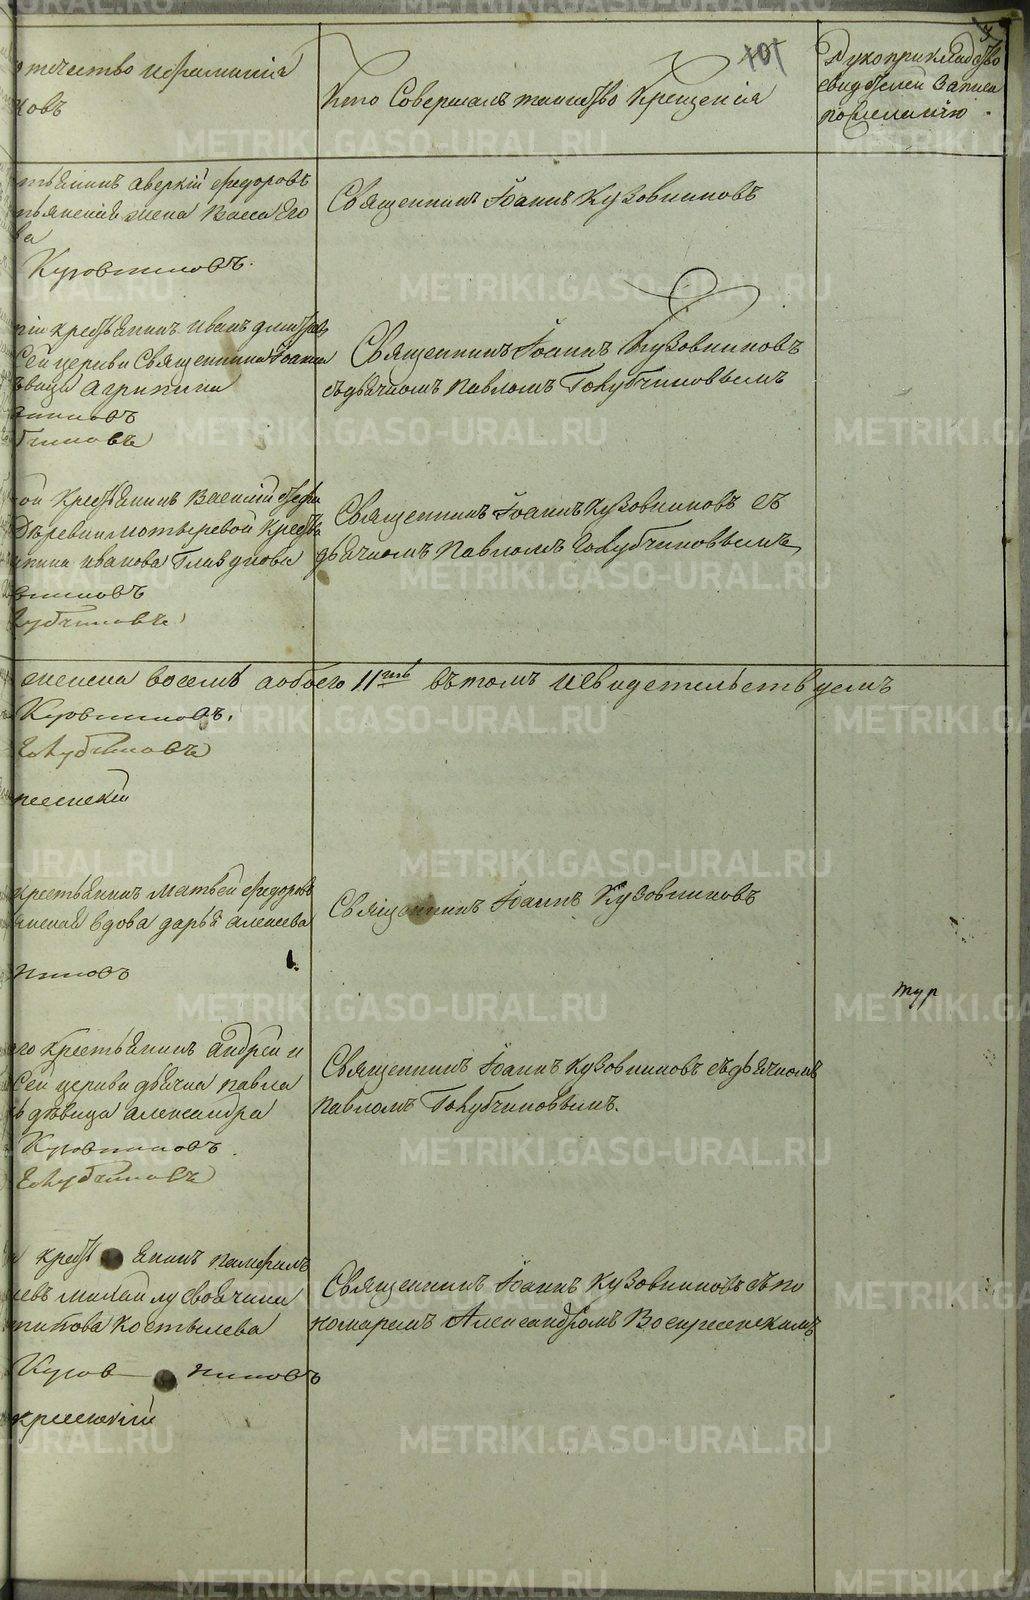 отчество и фамилія
ковъ
101
Кто Совершалъ таинство Крещенія
Рукоприкладство
свидѣтелей Записи
по желанію
тьянинъ аверкій Федоровъ
жена Васса Его
ва
Кузовниковъ.
Священникъ Іоаннъ Кузовниковъ
крестьянинъ иванъ
Сей церкви Священника Іоанна
вица Агрипина
никовъ
бчиковъ
Священникъ Іоаннъ Кузовниковъ
съ дьячкомъ Павломъ Голубчиковымъ
ой Крестьянинъ Василій
Деревни мотыревой Крестья
ивановa
вниковъ
лубчиковъ
Священникъ Іоаннъ Кузовниковъ съ
дьячкомъ Павломъ Голубчиковымъ
женска восемь а обоего 11ть въ томъ и Свидетельствуемъ
Кузовниковъ.
Голубчиковъ
ресенскій
крестьянинъ Матвей Федоровъ
вдова дарья алексеева
никовъ
Священникъ Іоаннъ Кузовниковъ
тур
го крестьянинъ андрей и
Сей церкви дьячка павла
дѣвица александра
Кузовниковъ.
Голубчиковъ
Священникъ Іоаннъ Кузовниковъ съ дьячкомъ
павломъ Голубчиковымъ.
крестьянинъ памфилъ
Костылева
Кузовниковъ
кресенскій
Священникъ Іоаннъ Кузовниковъ съ по
номаремъ Александромъ Воскресенскимъ
METRIKI.GASO-URAL.RU